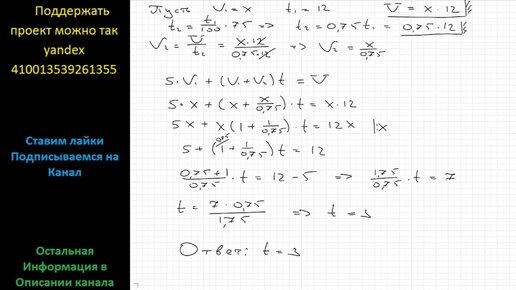 Поддержать
проект можно так
yandex
410013539261355
Ставим лайки
Подписываемся на
Канал
Остальная
Информация в
Описании канала
Пусть V₁ = x t₁ = 12 V = x · 12
t₂ = t₁/100 · 75 => t₂ = 0,75t₁ = 0,75·12
V₂ = V/t₂ = x·12/0,75·12 => V₂ = x/0,75
5·V₁ + (V₁+V₂)t = V
5·x + (x + x/0,75)·t = x·12
5x + x(1 + 1/0,75)·t = 12x |:x
5 + (1 + 1/0,75)t = 12
0,75+1/0,75 · t = 12 - 5 => 1,75/0,75 · t = 7
t = 7·0,75/1,75 => t = 3
Ответ: t = 3